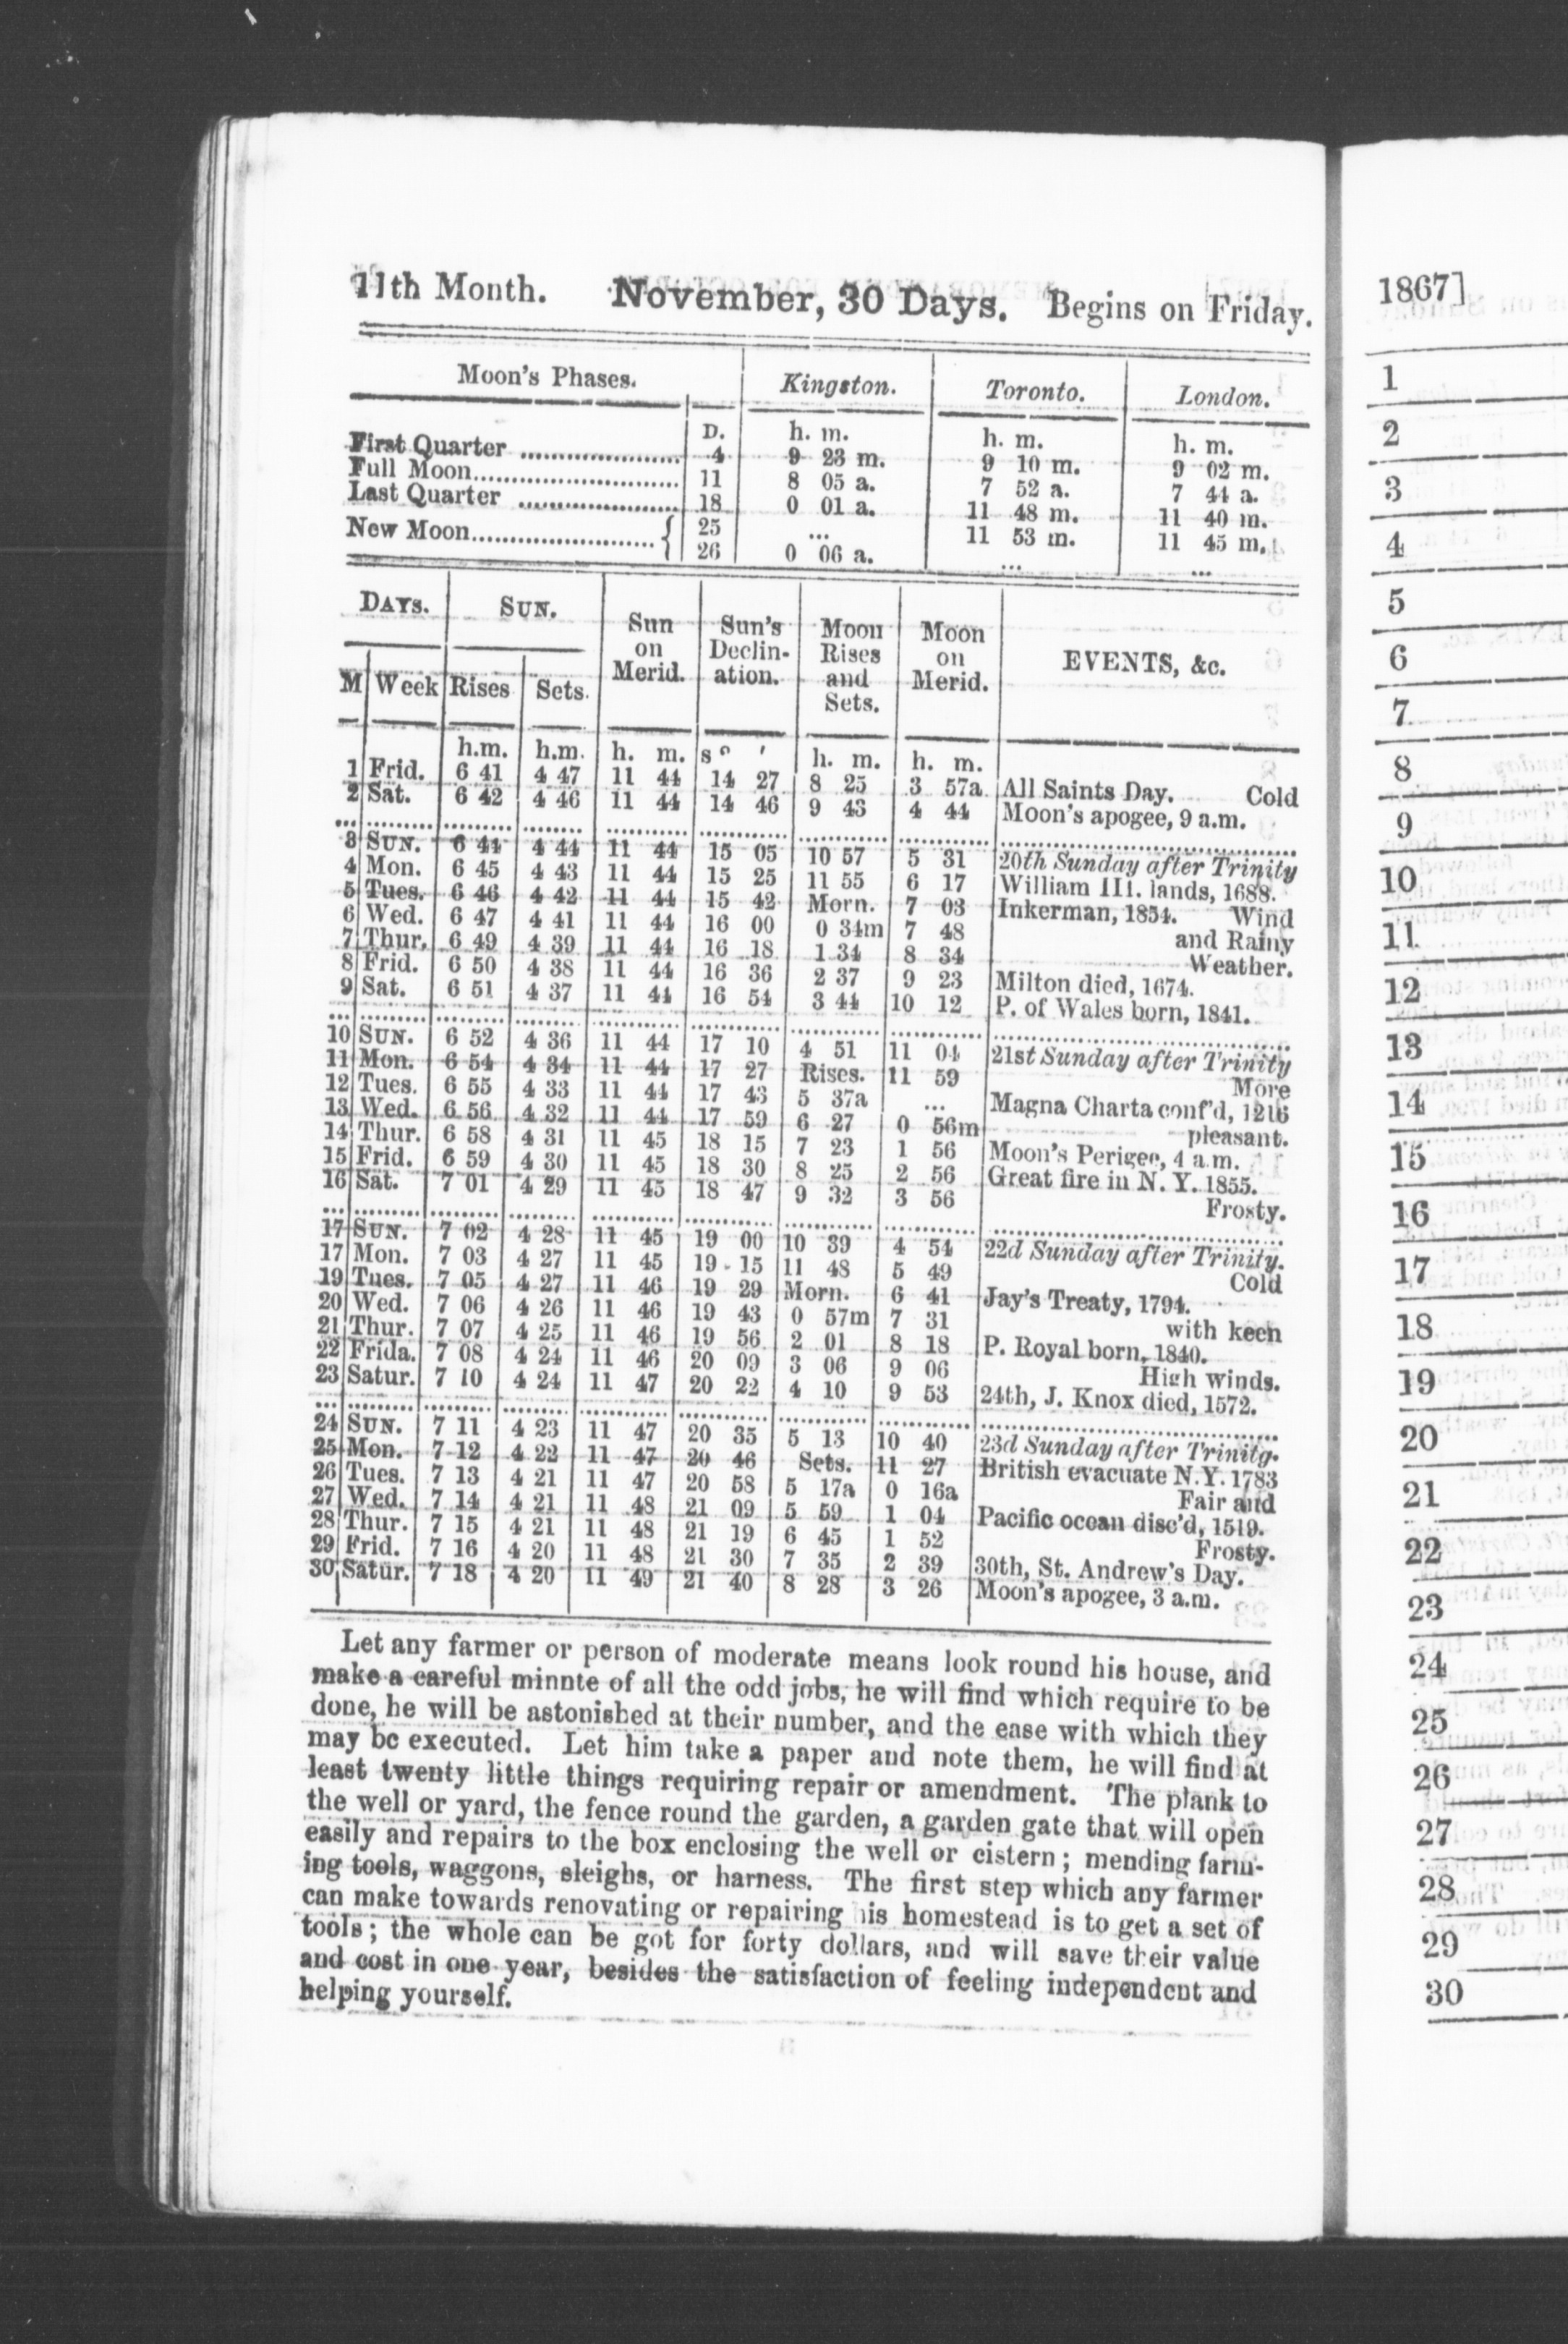 11th Month. November, 30 Days. Begins on Friday.
Moon's Phases. Kingston. Toronto. London.
D. h. m. h. m. h. m.
First Quarter ........................ 4 9 23 m. 9 10 m. 9 02 m.
Full Moon............................. 11 8 05 a. 7 52 a. 7 44 a.
Last Quarter ........................ 18 0 01 a. 11 48 m. 11 40 m.
New Moon.......................... { 25 ... 11 53 m. 11 45 m.
26 0 06 a. ... ...
DAYS. SUN. Sun on Merid. Sun's Declin-ation. Moon Rises and Sets. Moon on Merid. EVENTS, &c.
M Week Rises Sets.
h.m. h.m. h. m. s ° ' h. m. h. m.
1 Frid. 6 41 4 47 11 44 14 27 8 25 3 57a All Saints Day. Cold
2 Sat. 6 42 4 46 11 44 14 46 9 43 4 44 Moon's apogee, 9 a.m.
3 SUN. 6 44 4 44 11 44 15 05 10 57 5 31 20th Sunday after Trinity
4 Mon. 6 45 4 43 11 44 15 25 11 55 6 17 William III. lands, 1688.
5 Tues. 6 46 4 42 11 44 15 42 Morn. 7 03 Inkerman, 1854. Wind
6 Wed. 6 47 4 41 11 44 16 00 0 34m 7 48 and Rainy
7 Thur. 6 49 4 39 11 44 16 18 1 34 8 34 Weather.
8 Frid. 6 50 4 38 11 44 16 36 2 37 9 23 Milton died, 1674.
9 Sat. 6 51 4 37 11 44 16 54 3 44 10 12 P. of Wales born, 1841.
10 SUN. 6 52 4 36 11 44 17 10 4 51 11 04 21st Sunday after Trinity
11 Mon. 6 54 4 34 11 44 17 27 Rises. 11 59 More
12 Tues. 6 55 4 33 11 44 17 43 5 37a ... Magna Charta conf'd, 1216
13 Wed. 6 56 4 32 11 44 17 59 6 27 0 56m pleasant.
14 Thur. 6 58 4 31 11 45 18 15 7 23 1 56 Moon's Perigee, 4 a.m.
15 Frid. 6 59 4 30 11 45 18 30 8 25 2 56 Great fire in N. Y. 1855.
16 Sat. 7 01 4 29 11 45 18 47 9 32 3 56 Frosty.
17 SUN. 7 02 4 28 11 45 19 00 10 39 4 54 22d Sunday after Trinity.
17 Mon. 7 03 4 27 11 45 19 15 11 48 5 49 Cold
19 Tues. 7 05 4 27 11 46 19 29 Morn. 6 41 Jay's Treaty, 1794.
20 Wed. 7 06 4 26 11 46 19 43 0 57m 7 31 with keen
21 Thur. 7 07 4 25 11 46 19 56 2 01 8 18 P. Royal born, 1840.
22 Frida. 7 08 4 24 11 46 20 09 3 06 9 06 High winds.
23 Satur. 7 10 4 24 11 47 20 22 4 10 9 53 24th, J. Knox died, 1572.
24 SUN. 7 11 4 23 11 47 20 35 5 13 10 40 23d Sunday after Trinitg.
25 Mon. 7 12 4 22 11 47 20 46 Sets. 11 27 British evacuate N.Y. 1783
26 Tues. 7 13 4 21 11 47 20 58 5 17a 0 16a Fair and
27 Wed. 7 14 4 21 11 48 21 09 5 59 1 04 Pacific ocean disc'd, 1519.
28 Thur. 7 15 4 21 11 48 21 19 6 45 1 52 Frosty.
29 Frid. 7 16 4 20 11 48 21 30 7 35 2 39 30th, St. Andrew's Day.
30 Satur. 7 18 4 20 11 49 21 40 8 28 3 26 Moon's apogee, 3 a.m.
Let any farmer or person of moderate means look round his house, and
make a careful minnte of all the odd jobs, he will find which require to be
done, he will be astonished at their number, and the ease with which they
may be executed. Let him take a paper and note them, he will find at
least twenty little things requiring repair or amendment. The plank to
the well or yard, the fence round the garden, a garden gate that will open
easily and repairs to the box enclosing the well or cistern; mending farm-
ing tools, waggons, sleighs, or harness. The first step which any farmer
can make towards renovating or repairing his homestead is to get a set of
tools; the whole can be got for forty dollars, and will save their value
and cost in one year, besides the satisfaction of feeling independent and
helping yourself.
1867]
1
2
3
4
5
6
7
8
9
10
11
12
13
14
15
16
17
18
19
20
21
22
23
24
25
26
27
28
29
30